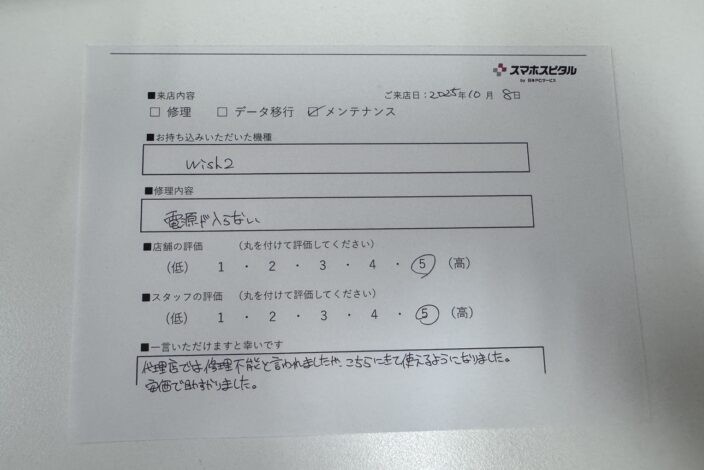 スマホスピタル
by 日本PCサービス
■来店内容
ご来店日：2025年10月8日
□ 修理 □ データ移行 ☑ メンテナンス
■お持ち込みいただいた機種
wish2
■修理内容
電源が入らない
■店舗の評価 （丸を付けて評価してください）
（低） 1 ・ 2 ・ 3 ・ 4 ・ 5 （高）
■スタッフの評価 （丸を付けて評価してください）
（低） 1 ・ 2 ・ 3 ・ 4 ・ 5 （高）
■一言いただけますと幸いです
代理店では修理不能と言われましたが、こちらにきて使えるようになりました。
安価で助かりました。